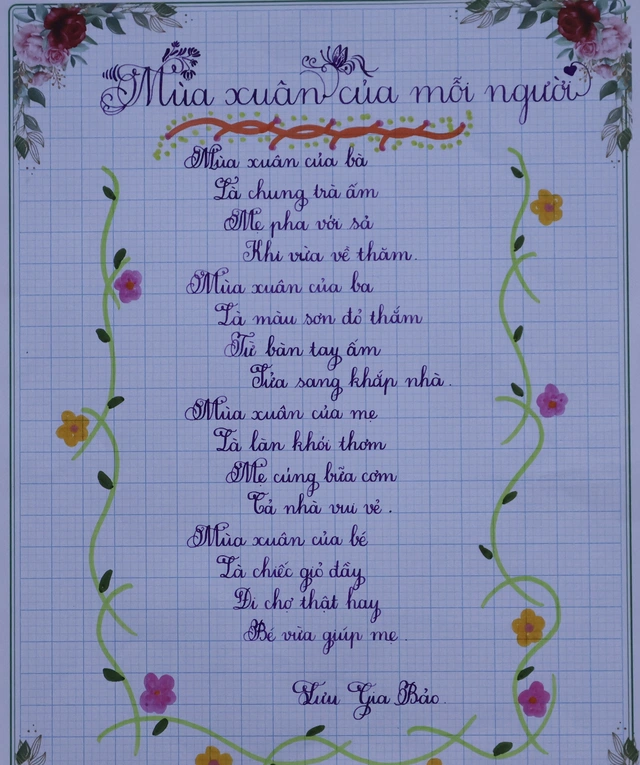 Mùa xuân của mỗi người
Mùa xuân của bà
Là chung trà ấm
Mẹ pha với sả
Khi vừa về thăm.
Mùa xuân của ba
Là màu sơn đỏ thắm
Từ bàn tay ấm
Sửa sang khắp nhà.
Mùa xuân của mẹ
Là làn khói thơm
Mẹ cúng bữa cơm
Cả nhà vui vẻ.
Mùa xuân của bé
Là chiếc giỏ đầy
Đi chợ thật hay
Bé vừa giúp mẹ.
Lưu Gia Bảo.